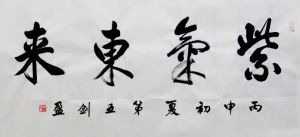 紫氣東来
丙申初夏第五剑盈